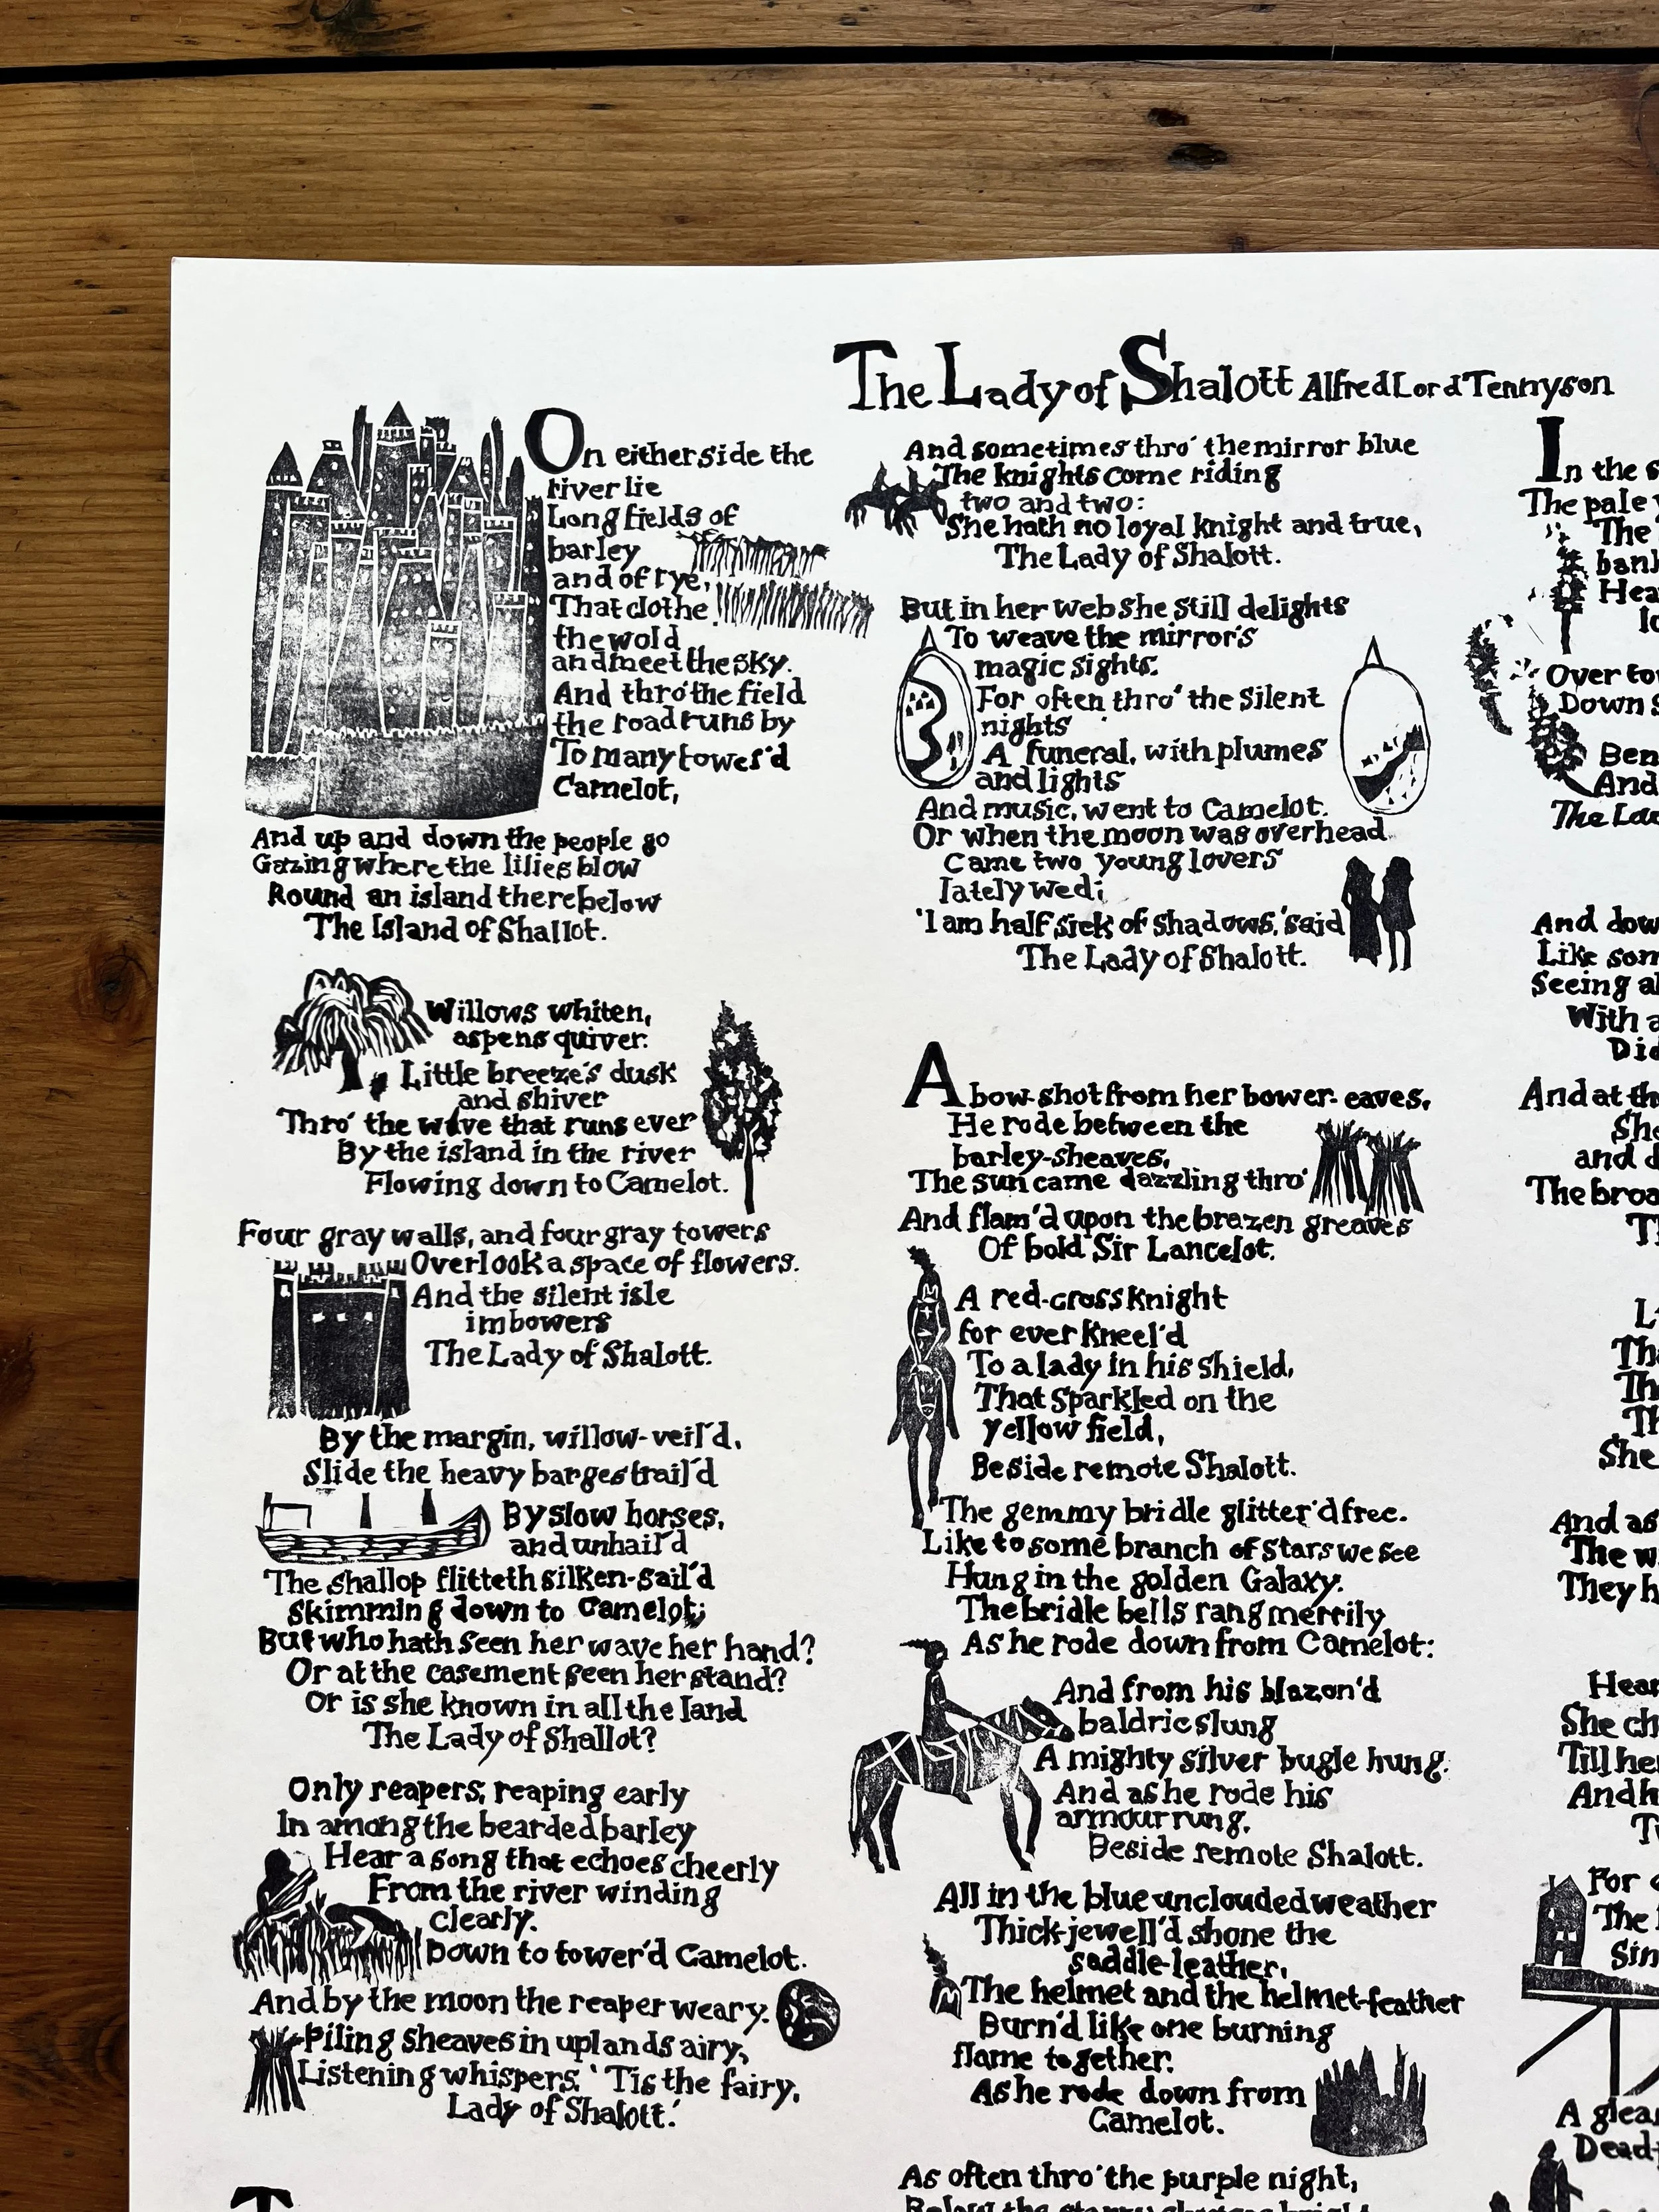 The Lady of Shalott Alfred Lord Tennyson
On either side the
river lie
Long fields of
barley
and of rye,
That clothe
the wold
and meet the sky.
And thro' the field
the road runs by
To many tower'd
Camelot,
And up and down the people go
Gazing where the lilies blow
Round an island there below
The Island of Shallot.
Willows whiten,
aspens quiver.
Little breeze's dusk
and shiver
Thro' the wave that runs ever
By the island in the river
Flowing down to Camelot.
Four gray walls, and four gray towers
Overlook a space of flowers.
And the silent isle
imbowers
The Lady of Shalott.
By the margin, willow-veil'd,
Slide the heavy barges trail'd
By slow horses,
and unhail'd
The shallop flitteth silken-sail'd
Skimming down to Camelot;
But who hath seen her wave her hand?
Or at the casement seen her stand?
Or is she known in all the land
The Lady of Shallot?
Only reapers, reaping early
In among the bearded barley
Hear a song that echoes cheerly
From the river winding
clearly.
Down to tower'd Camelot.
And by the moon the reaper weary.
Piling sheaves in uplands airy,
Listening whispers. 'Tis the fairy,
Lady of Shalott.'
T
And sometimes thro' the mirror blue
The knights come riding
two and two:
She hath no loyal knight and true,
The Lady of Shalott.
But in her web she still delights
To weave the mirror's
magic sights.
For often thro' the silent
nights
A funeral, with plumes
and lights
And music, went to Camelot.
Or when the moon was overhead
Came two young lovers
lately wed;
'I am half sick of shadows,' said
The Lady of Shalott.
A bow-shot from her bower-eaves,
He rode between the
barley-sheaves,
The sun came dazzling thro'
And flam'd upon the brazen greaves
Of bold Sir Lancelot.
A red-cross knight
for ever kneel'd
To a lady in his shield,
That sparkled on the
yellow field,
Beside remote Shalott.
The gemmy bridle glitter'd free.
Like to some branch of stars we see
Hung in the golden Galaxy.
The bridle bells rang merrily
As he rode down from Camelot:
And from his blazon'd
baldric slung
A mighty silver bugle hung.
And as he rode his
armour rung,
Beside remote Shalott.
All in the blue unclouded weather
Thick-jewell'd shone the
saddle-leather,
The helmet and the helmet-feather
Burn'd like one burning
flame together.
As he rode down from
Camelot.
As often thro' the purple night,
Below the starry clusters bright
In the
The pale
The
Over
Down
Ben
And
The
And
Like
Seeing
With a
Did
And at
She
and
The
She
And as
The
They
She
Till her
And
For
The
Sin
A
Dead-